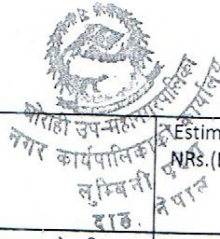 घोराही उप-महानगरपालिका
नगर कार्यपालिकाको कार्यालय
लुम्बिनी
दाङ, नेपाल
Estim
NRs.(